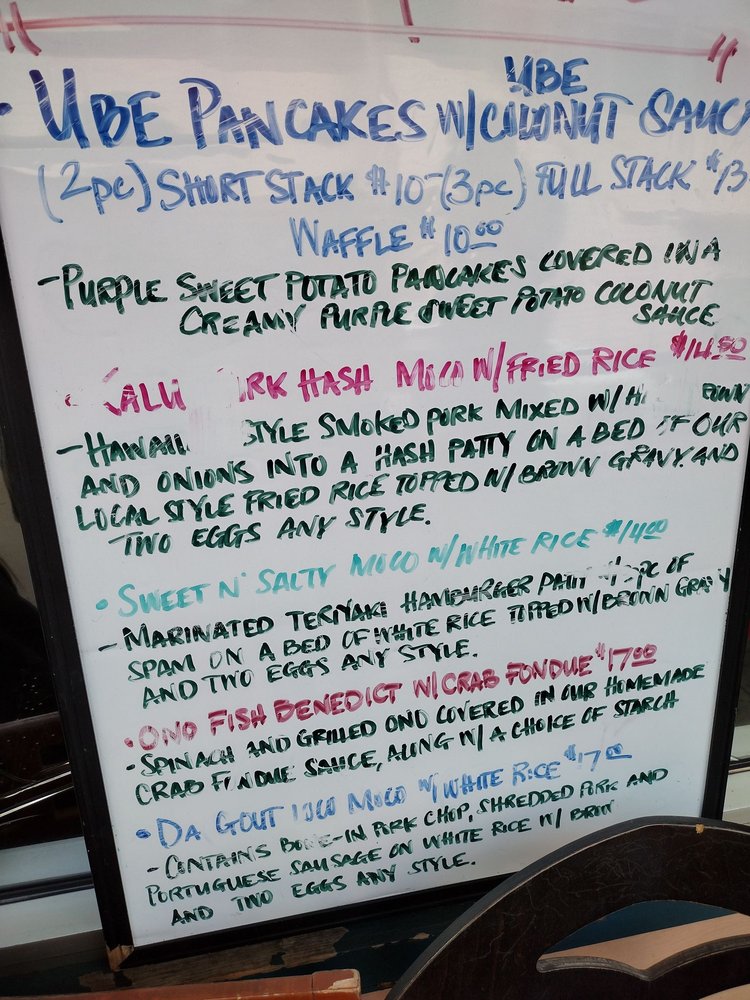 UBE
• UBE PANCAKES W/COCONUT SAUC
(2pc) SHORT STACK $10- (3pc) FULL STACK $13
WAFFLE $10.00
-PURPLE SWEET POTATO PANCAKES COVERED IN A
CREAMY PURPLE SWEET POTATO COCONUT
SAUCE
• KALU RK HASH MOCO W/FRIED RICE $14.50
-HAWAII STYLE SMOKED PORK MIXED W/ H OWN
AND ONIONS INTO A HASH PATTY ON A BED OF OUR
LOCAL STYLE FRIED RICE TOPPED W/ BROWN GRAVY AND
TWO EGGS ANY STYLE.
• SWEET N' SALTY MOCO W/WHITE RICE $14.00
- MARINATED TERIYAKI HAMBURGER PATTY PC OF
SPAM ON A BED OF WHITE RICE TOPPED W/BROWN GRAVY
AND TWO EGGS ANY STYLE.
• ONO FISH BENEDICT W/CRAB FONDUE $17.00
- SPINACH AND GRILLED ONO COVERED IN OUR HOMEMADE
CRAB FONDUE SAUCE, ALONG W/ A CHOICE OF STARCH
• DA GOUT LOCO MOCO W/WHITE RICE $17.00
- CONTAINS BONE-IN PORK CHOP, SHREDDED PORK AND
PORTUGUESE SAUSAGE ON WHITE RICE W/ BROW
AND TWO EGGS ANY STYLE.